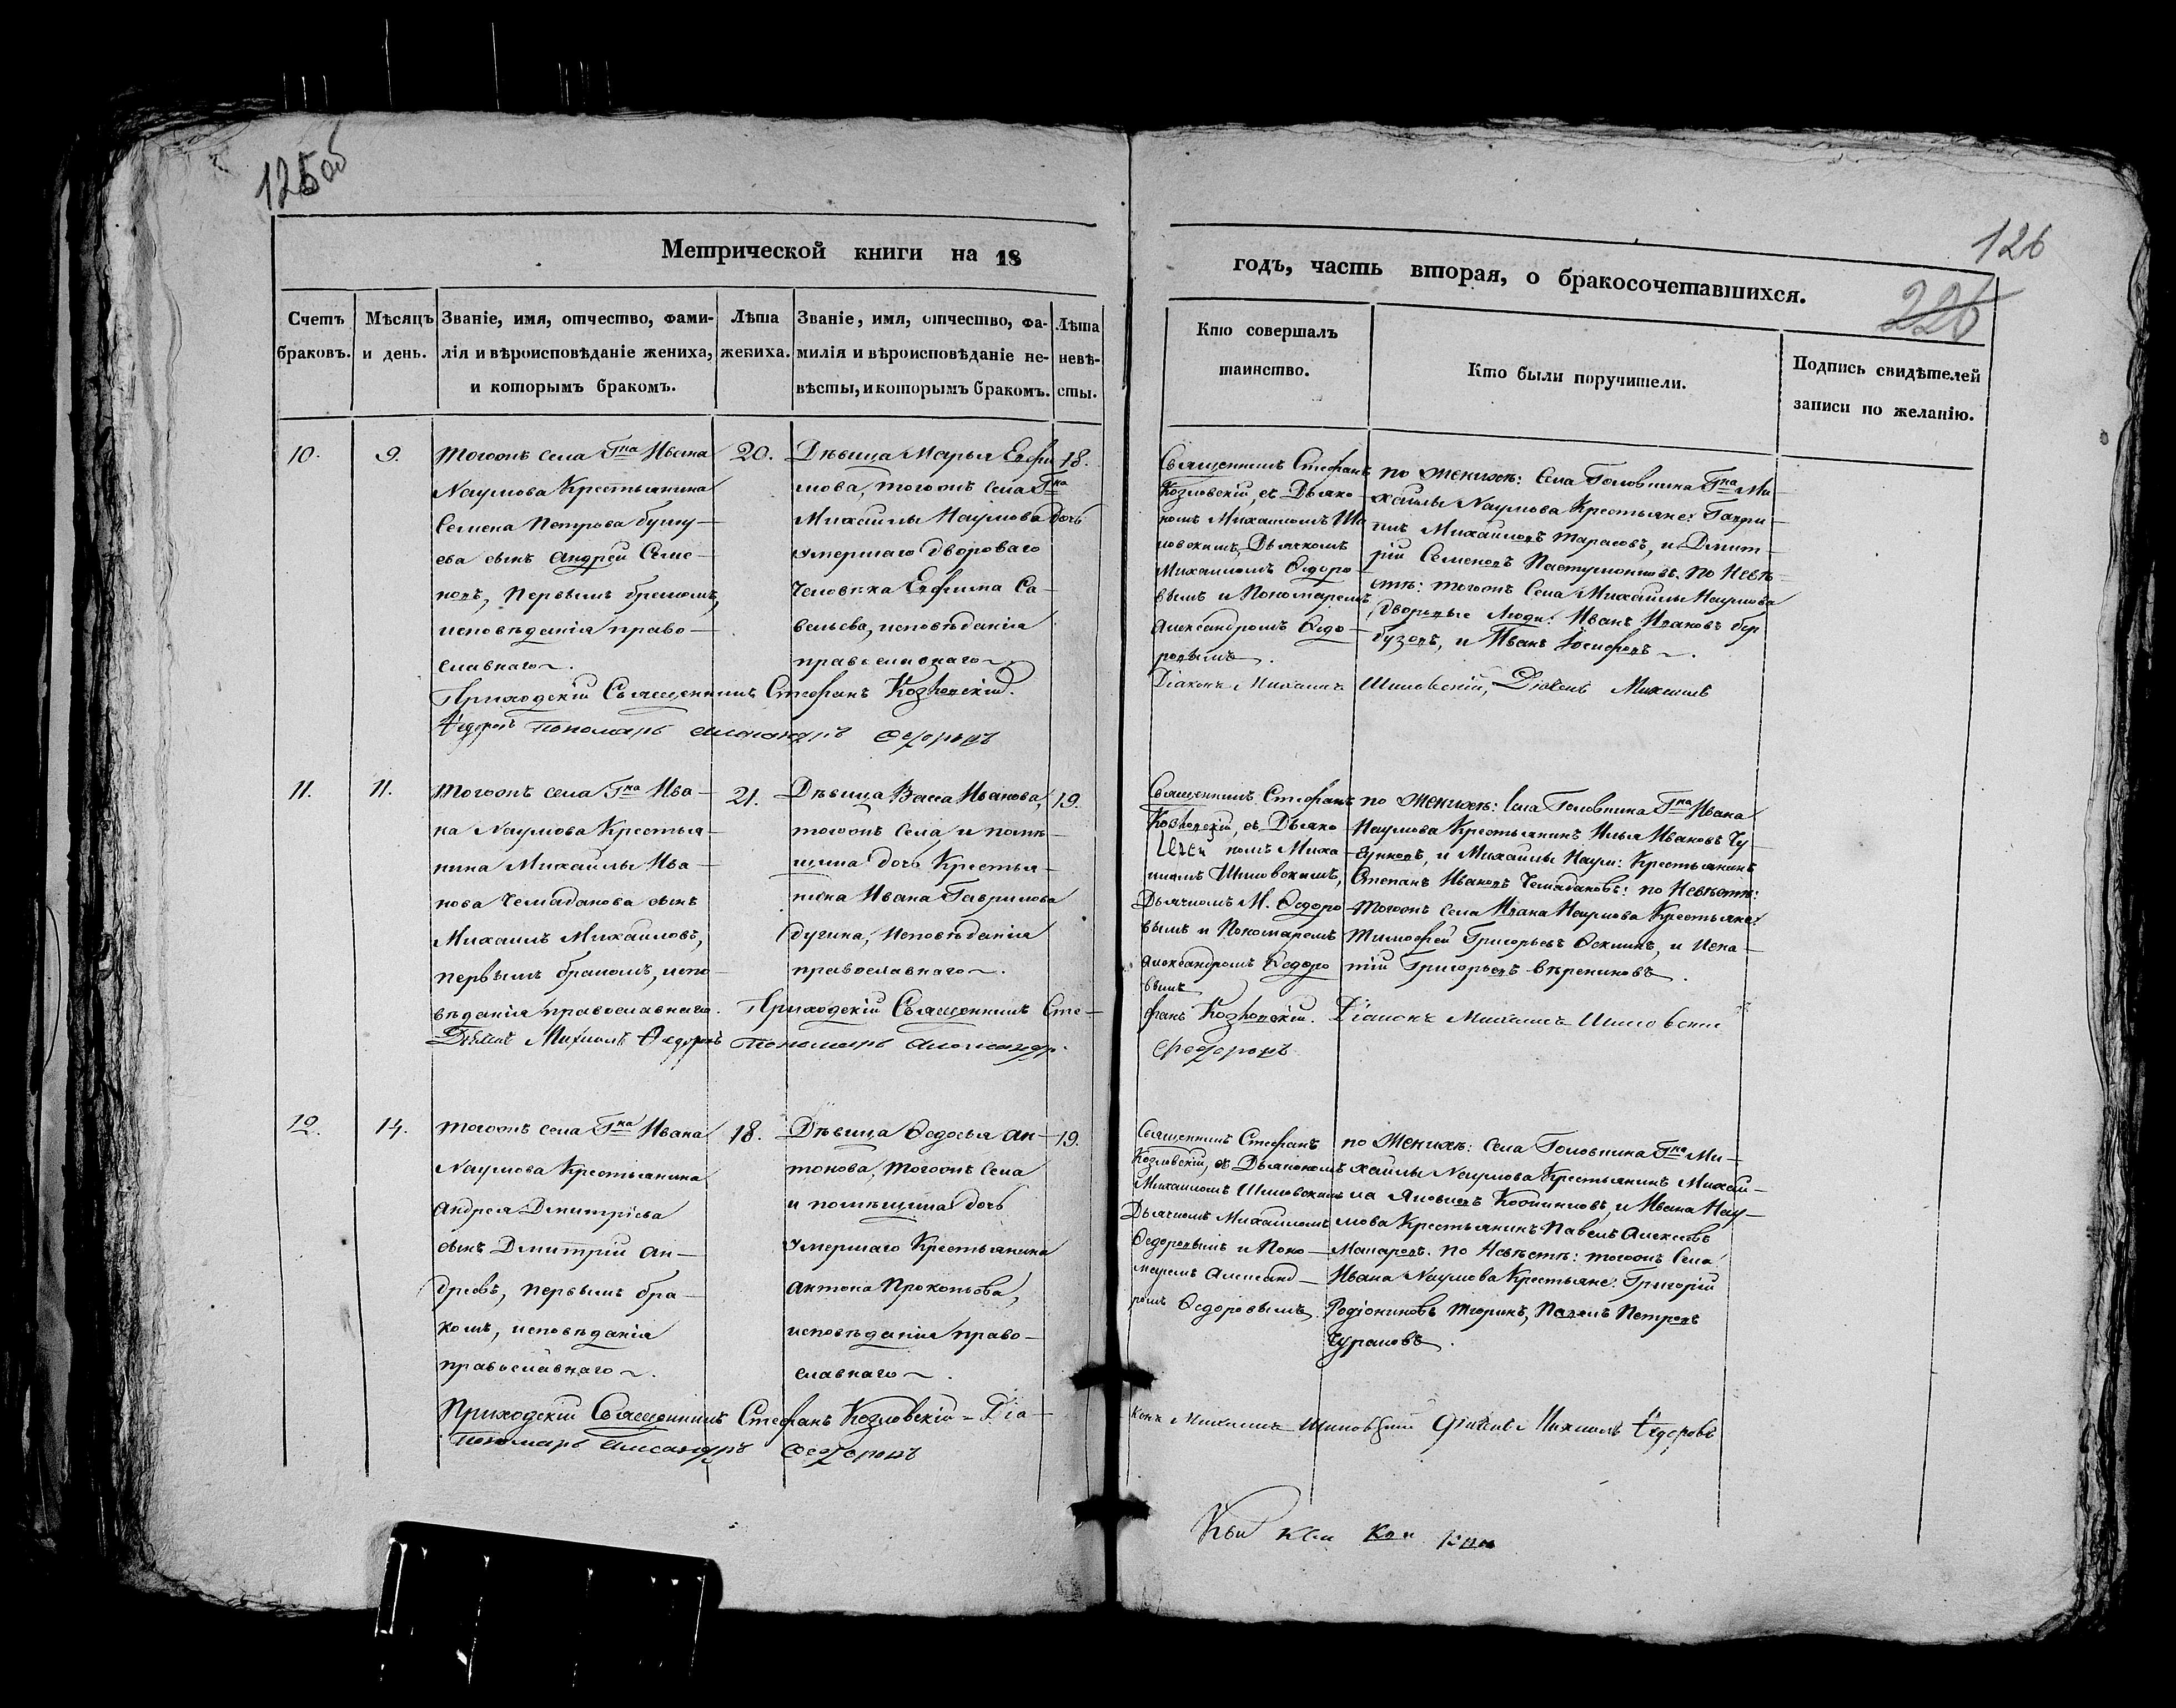 125об
126
226
Метрической книги на 18
годъ, часть вторая, о бракосочетавшихся.
Счетъ браковъ.
Мѣсяцъ и день.
Званіе, имя, отчество, фами-
лія и вѣроисповѣданіе жениха,
и которымъ бракомъ.
Лѣта
жениха.
Званіе, имя, отчество, фа-
милія и вѣроисповѣданіе не-
вѣсты, и которымъ бракомъ.
Лѣта
невѣ-
сты.
Кто совершалъ
таинство.
Кто были поручители.
Подпись свидѣтелей
записи по желанію.
10.
9.
Тогожъ села Гна Ивана
Наумова Крестьянина
Семена Петрова
ева сынъ Андрей Семе-
новъ, первымъ бракомъ,
исповѣданія право-
славнаго.
20.
Дѣвица Марья Ефи
мова, тогожъ села Гна
Михайлы Наумова дочь
умершаго двороваго
человѣка Ефима Са-
вельева, исповѣданія
православнаго.
18.
Священникъ Стефанъ
Козловскій, съ Дьяко-
номъ Михаиломъ Ши
ловскимъ, Дьячкомъ
Михаиломъ Ѳедоро-
вымъ и Пономаремъ
Александромъ Ѳедо-
ровымъ.
по женихѣ: села Головнина Гна Ми-
хайлы Наумова Крестьяне: Гаври-
илъ Михайловъ Тарасовъ, и Дмит-
рій Семеновъ Пастушковъ. по Невѣ-
стѣ: тогожъ села Михайлы Наумова
дворовые люди: Иванъ Ивановъ
и Иванъ Іосифовъ.
Приходскій Священникъ Стефанъ Козловскій.
Діаконъ Михаилъ Шиловскій, Дьячекъ Михаилъ
Ѳедоровъ Пономарь Александръ Ѳедоровъ
11.
11.
Тогожъ села Гна Ива-
на Наумова Крестья-
нина Михайлы Ива-
нова Чемаданова сынъ
Михаилъ Михаиловъ,
первымъ бракомъ, испо-
вѣданія православнаго.
21.
Дѣвица Васса Иванова,
тогожъ села и помѣ-
щика дочь Крестья-
нина Ивана Гаврилова
Дугина, исповѣданія
православнаго.
19.
Священникъ Стефанъ
Козловскій, съ Дьяко-
номъ Миха-
иломъ Шиловскимъ,
Дьячкомъ М. Ѳедоро-
вымъ и Пономаремъ
Александромъ Ѳедоро
вымъ
по женихѣ: села Головнина Гна Ивана
Наумова Крестьянинъ Илья Ивановъ
и Михайлы Наум: Крестьянинъ
Степанъ Ивановъ Чемадановъ: по Невѣстѣ:
тогожъ села Ивана Наумова Крестьяне:
Тимофей Григорьевъ и Игна-
тій Григорьевъ
Приходскій Священникъ Сте-
фанъ Козловскій. Діаконъ Михаилъ Шиловскій
Дьячекъ Михаилъ Ѳедоровъ Пономарь Александръ
Ѳедоровъ
12.
14.
Тогожъ села Гна Ивана
Наумова Крестьянина
Андрея Дмитріева
сынъ Дмитрій Ан-
дреевъ, первымъ бра-
комъ, исповѣданія
православнаго.
18.
Дѣвица Ѳедосья Ан-
тонова, тогожъ села
и помѣщика дочь
умершаго Крестьянина
Антона Прокопьева,
исповѣданія право-
славнаго.
19.
Священникъ Стефанъ
Козловскій, съ Дьякономъ
Михаиломъ Шиловскимъ
Дьячкомъ Михаиломъ
Ѳедоровымъ и Поно-
маремъ Александ-
ромъ Ѳедоровымъ.
по Женихѣ: села Головнина Гна Ми-
хайлы Наумова Крестьянинъ Михай-
ла Яковлевъ и Ивана Нау-
мова Крестьянинъ Павелъ Алексеевъ
Макаровъ. по Невѣстѣ: тогожъ села
Ивана Наумова Крестьяне: Григорій
Родіоновъ Тюринъ, Павелъ Петровъ
Чураковъ.
Приходскій Священникъ Стефанъ Козловскій - Діа-
конъ Михаилъ Шиловскій Дьячекъ Михаилъ Ѳедоровъ
Пономарь Александръ Ѳедоровъ